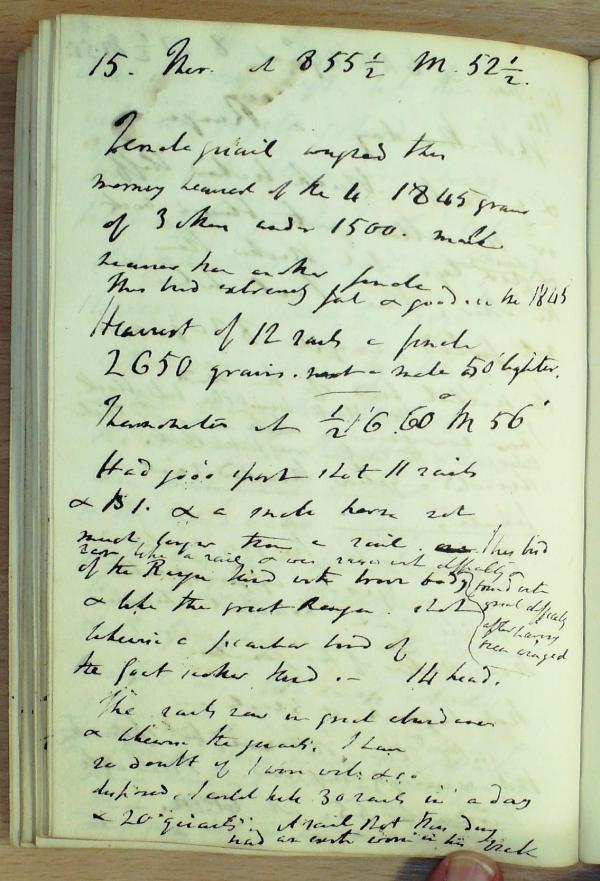 15. Ther. at 8 55½ M. 52½.
Female quail weighed this
morning heaviest of the 4 1845 grains
of 3 other under 1500. male
heavier than another female
this bird extremely fat & good. i.e. the 1845
Heaviest of 12 rails a female
2650 grains. a male 50 lighter.
Thermometer at ½ 6 60° M 56°
Had good sport shot 11 rails
& 1 & a small heron not
much larger than a rail. This bird
rose like a rail & was with difficulty
of the kind with brown body
found with
great difficulty
after having
been winged
& like the great shot
likewise a peculiar bird of
the goat sucker kind. — 14 head.
The rails now in great abundance
& likewise the quails. I have
no doubt if I were so
disposed, I could kill 30 rails in a day
& 20 quails. A rail shot this day
had an earth worm in his beak